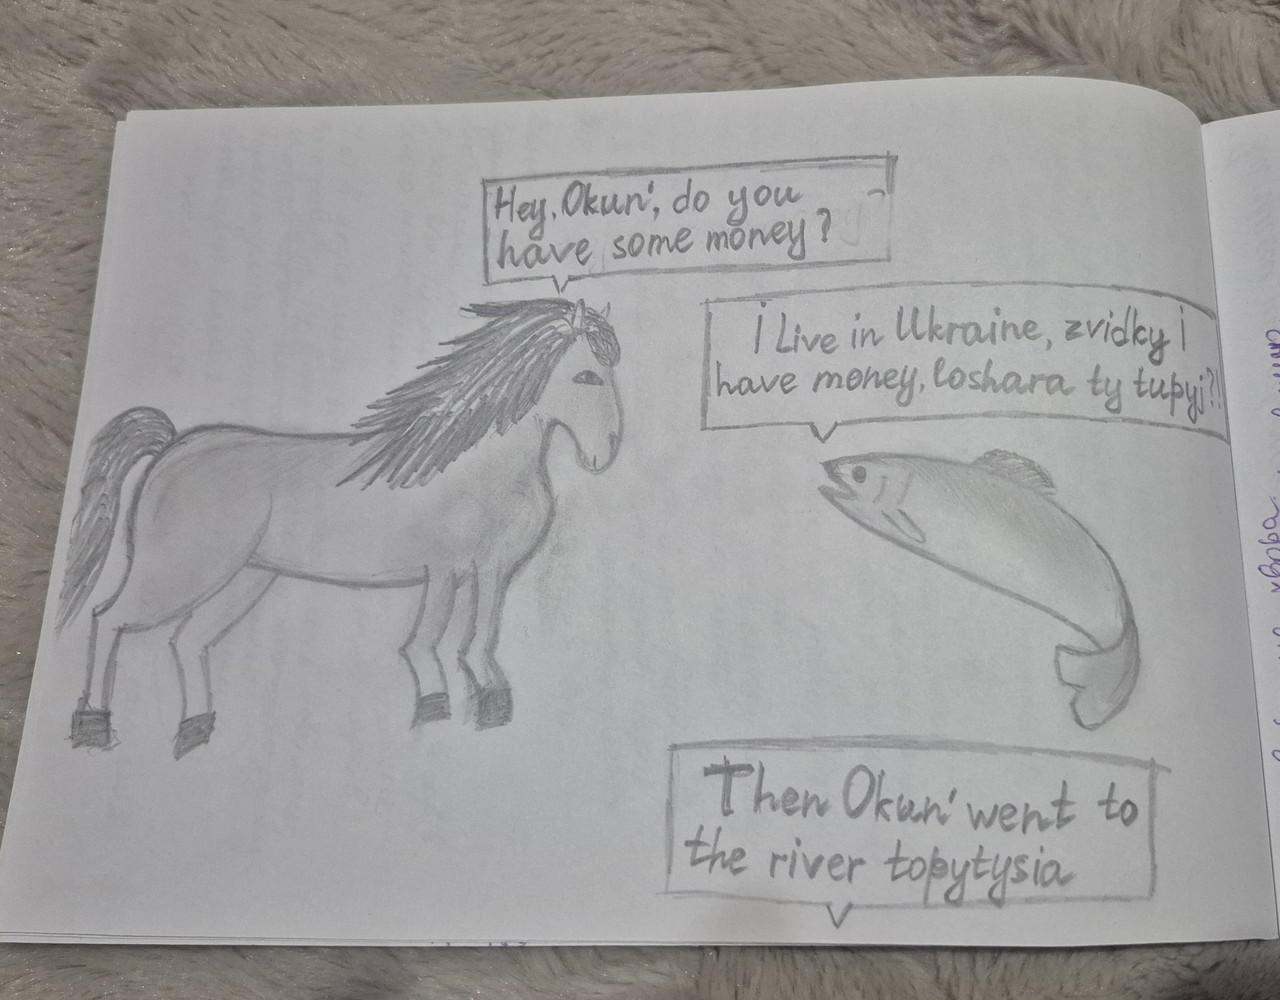 Hey, Okun', do you
have some money?
i Live in Ukraine, zvidky i
have money, loshara ty tupyj?!
Then Okun' went to
the river topytysia